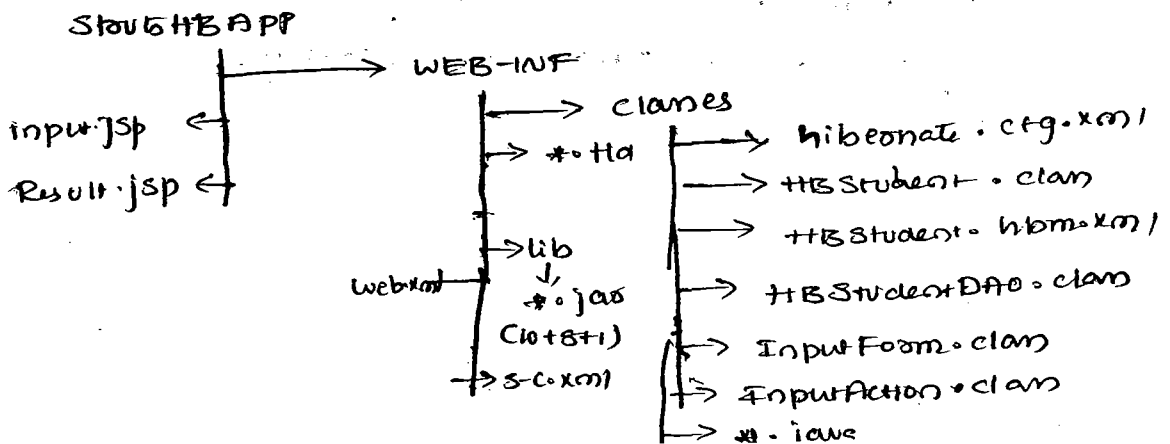 StrutsHBAPP
WEB-INF
input.jsp
Result.jsp
classes
*.tld
lib
*.jar
(10+8+1)
web.xml
s-c.xml
hibernate.cfg.xml
HBStudent.class
HBStudent.hbm.xml
HBStudentDAO.class
InputForm.class
InputAction.class
*.java